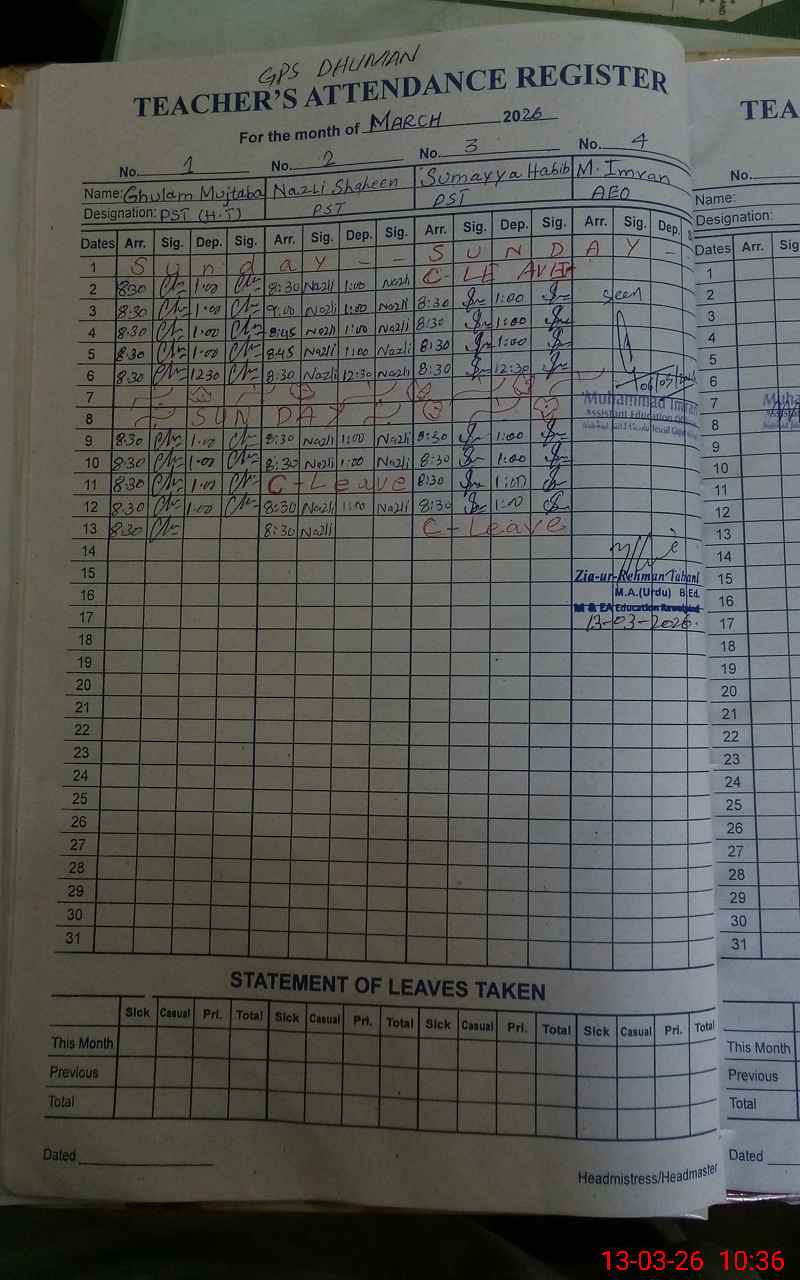 GPS DHUMAN
TEACHER'S ATTENDANCE REGISTER
For the month of MARCH 2026
No. 1 No. 2 No. 3 No. 4
Name: Ghulam Mujtaba Nazli Shaheen Sumayya Habib M. Imran
Designation: PST (H.T) PST PST AEO
Dates Arr. Sig. Dep. Sig. Arr. Sig. Dep. Sig. Arr. Sig. Dep. Sig. Arr. Sig. Dep.
1 S u n d a y - - S U N D A Y -
2 8:30 1:00 8:30 Nazli 1:00 Nazli C- LEAVE
3 8:30 1:00 9:00 Nazli 1:00 Nazli 8:30 1:00 seen
4 8:30 1:00 8:45 Nazli 1:00 Nazli 8:30 1:00
5 8:30 1:00 8:45 Nazli 1:00 Nazli 8:30 1:00
6 8:30 12:30 8:30 Nazli 12:30 Nazli 8:30 12:30
7 Muhammad Imran
8 SUNDAY Assistant Education
9 8:30 1:00 8:30 Nazli 1:00 Nazli 8:30 1:00
10 8:30 1:00 8:30 Nazli 1:00 Nazli 8:30 1:00
11 8:30 1:00 C-Leave 8:30 1:00
12 8:30 1:00 8:30 Nazli 1:00 Nazli 8:30 1:00
13 8:30 8:30 Nazli C-Leave
14
15 Zia-ur-Rehman Tabani
16 M.A.(Urdu) B.Ed.
17 M & EA Education Rawalpindi
13-03-2026.
18
19
20
21
22
23
24
25
26
27
28
29
30
31
STATEMENT OF LEAVES TAKEN
Sick Casual Pri. Total Sick Casual Pri. Total Sick Casual Pri. Total Sick Casual Pri. Total
This Month
Previous
Total
Dated
Headmistress/Headmaster
TEA
No.
Name:
Designation:
Dates Arr. Sig
1
2
3
4
5
6
7
8
9
10
11
12
13
14
15
16
17
18
19
20
21
22
23
24
25
26
27
28
29
30
31
This Month
Previous
Total
Dated
13-03-26 10:36